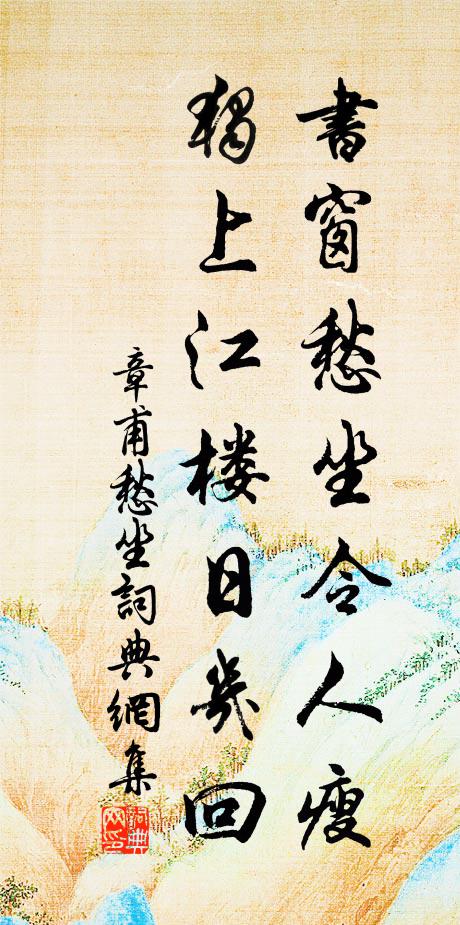 書窗愁坐令人瘦
獨上江楼日幾回
章甫愁坐詞典網集
詞典网印